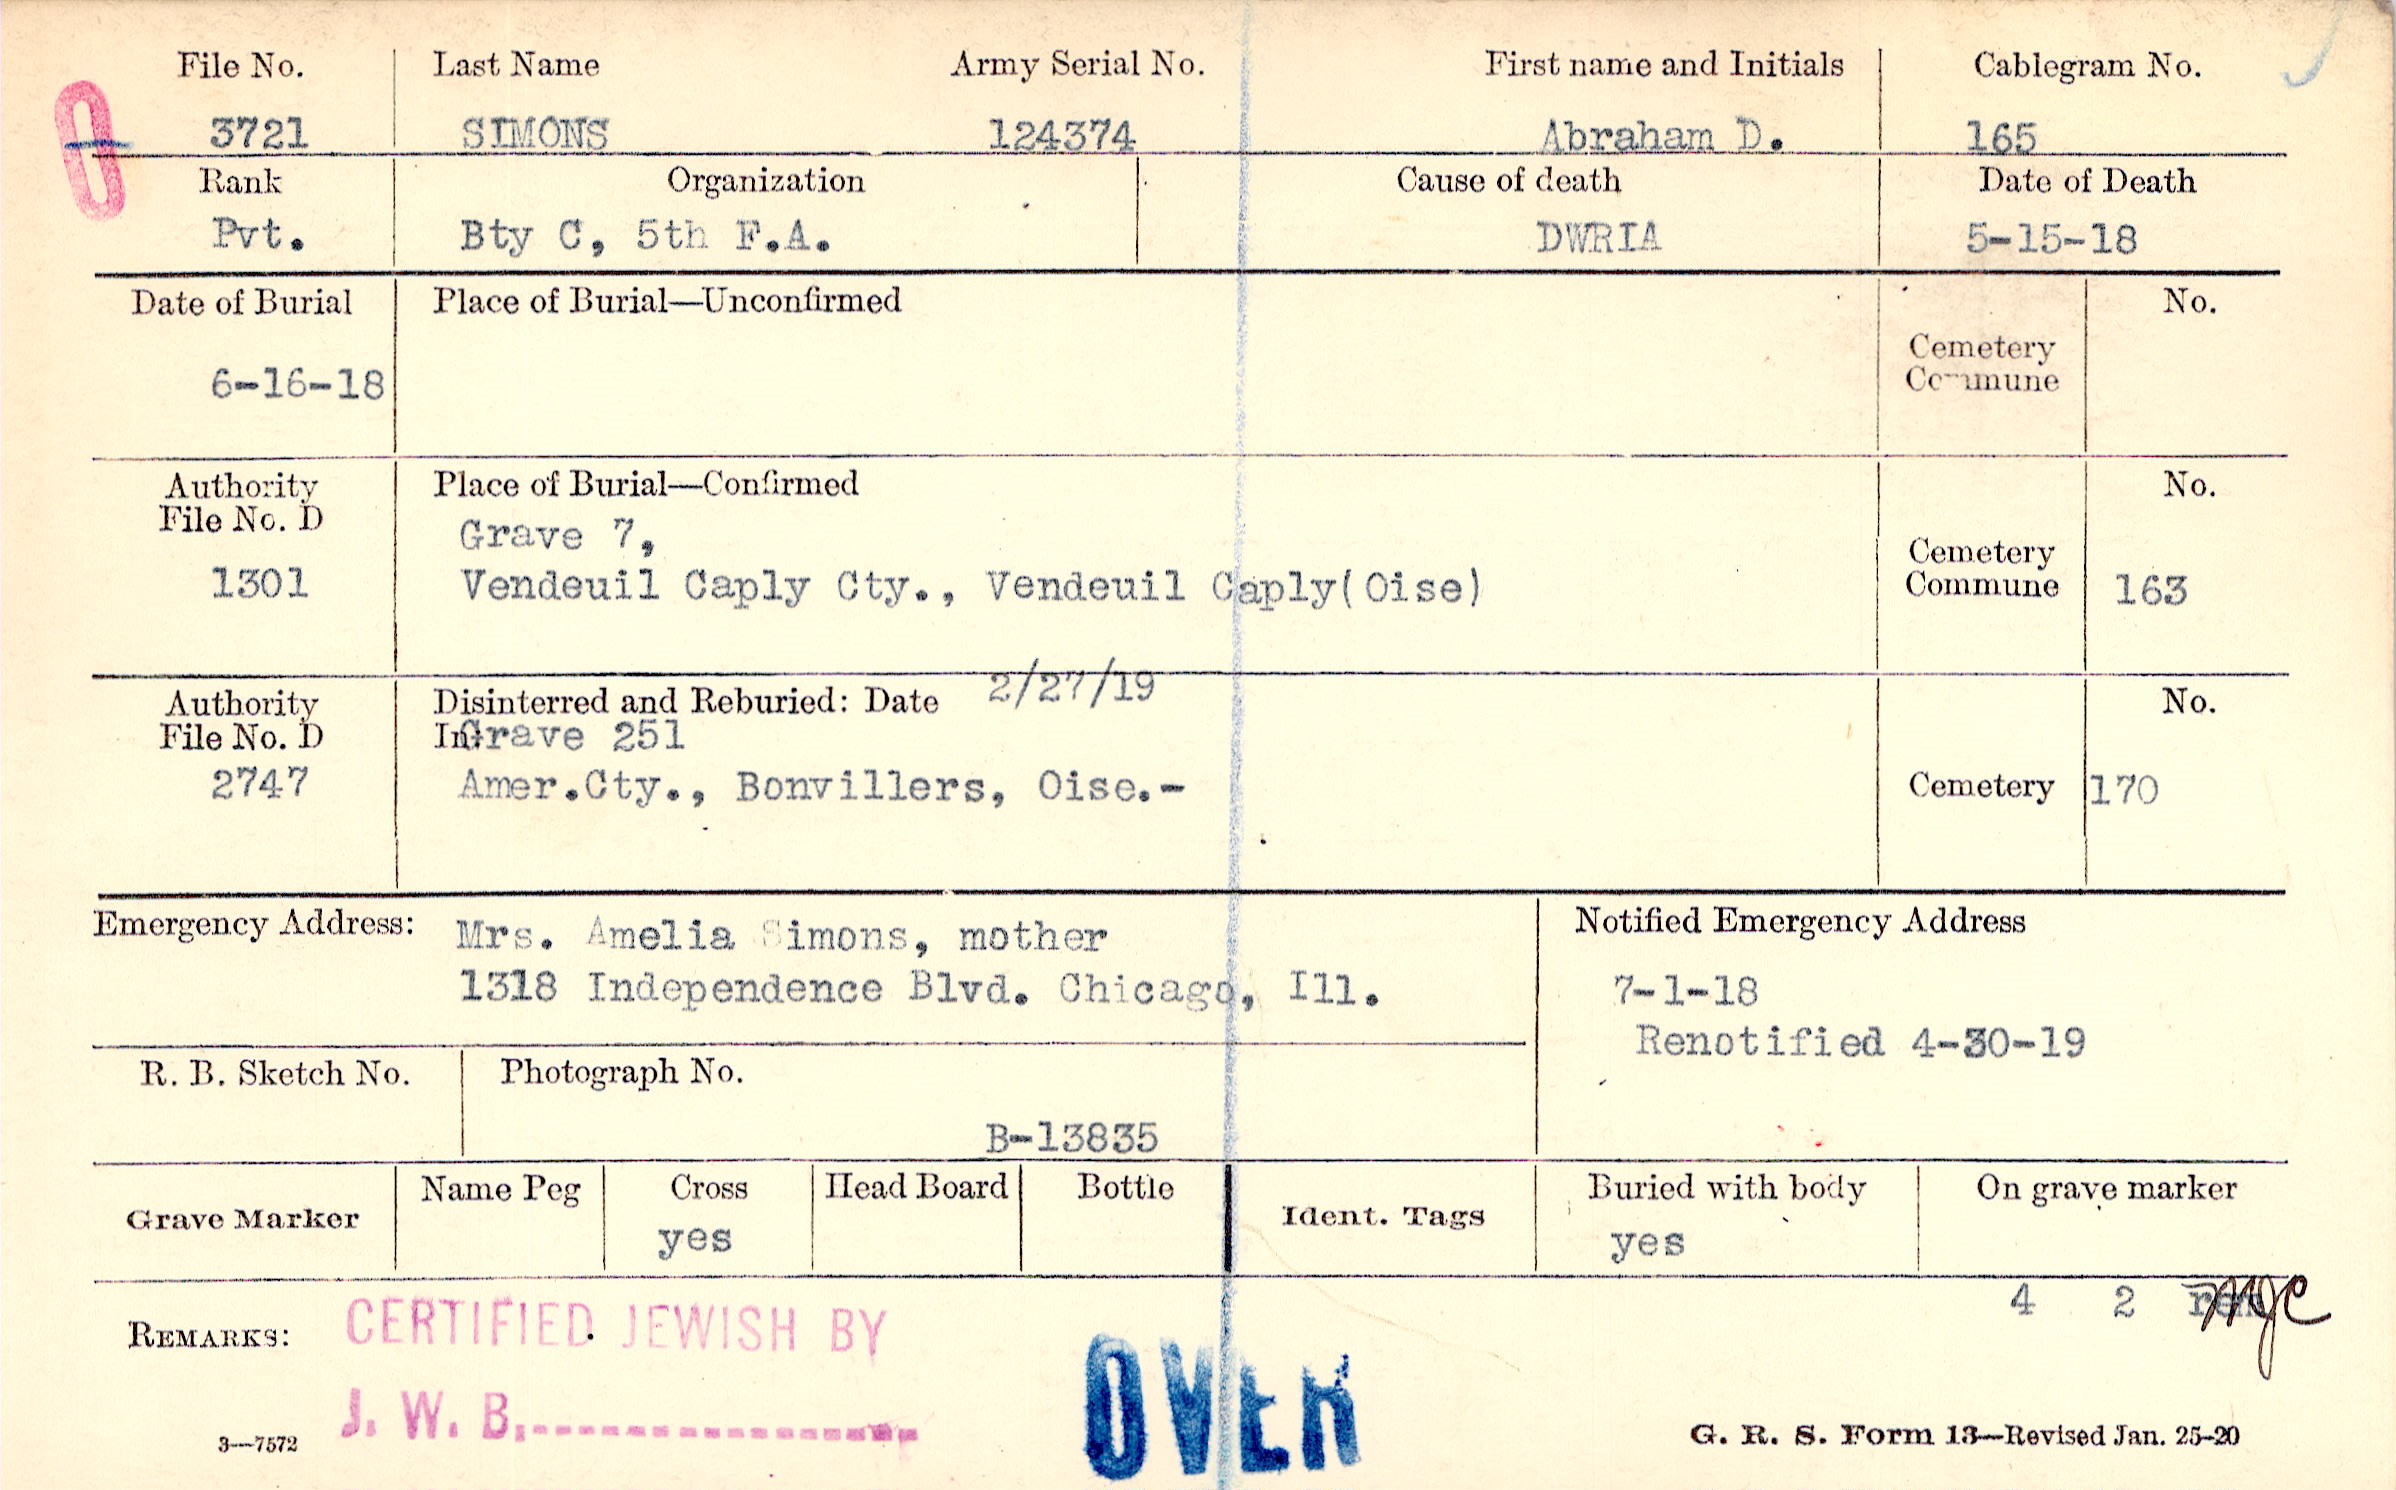 File No. Last Name Army Serial No. First name and Initials Cablegram No.
3721 SIMONS 124374 Abraham D. 165
Rank Organization Cause of death Date of Death
Pvt. Bty C, 5th F.A. DWRIA 5-15-18
Date of Burial Place of Burial—Unconfirmed No.
Cemetery
Commune
6-16-18
Authority Place of Burial—Confirmed No.
File No. D
Grave 7,
Cemetery
1301 Vendeuil Caply Cty., Vendeuil Caply(Oise) Commune 163
Authority Disinterred and Reburied: Date 2/27/19 No.
File No. D In: Grave 251
2747 Amer.Cty., Bonvillers, Oise.- Cemetery 170
Emergency Address: Mrs. Amelia Simons, mother Notified Emergency Address
1318 Independence Blvd. Chicago, Ill. 7-1-18
Renotified 4-30-19
R. B. Sketch No. Photograph No.
B-13835
Grave Marker Name Peg Cross Head Board Bottle Ident. Tags Buried with body On grave marker
yes yes
4 2
REMARKS: CERTIFIED JEWISH BY
J. W. B.
OVER
3—7572 G. R. S. Form 13—Revised Jan. 25-20